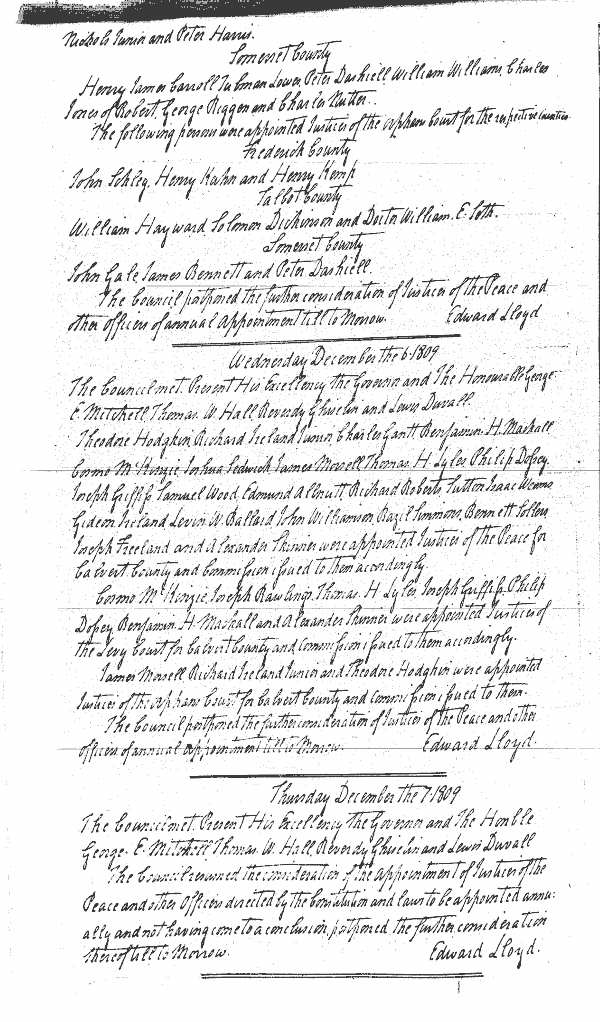 Nichols Junior and Peter Harris.
Somerset County
Henry James Carroll Tubman Lowes, Peter Dashiell, William Williams, Charles
Jones of Robert, George Riggen and Charles Nutter.
The following persons were appointed Justices of the orphans Court for the respective Counties.
Frederick County
John Schley, Henry Kuhn and Henry Kemp
Talbot County
William Hayward Solomon Dickinson and Doctor William. E. Seth.
Somerset County
John Gale, James Bennett and Peter Dashiell.
The Council postponed the further consideration of Justices of the Peace and
other Officers of annual Appointment till to Morrow. Edward Lloyd
Wednesday December the 6. 1809
The Council met. Present His Excellency the Governor and The Honourable George
E. Mitchell, Thomas. W. Hall Reverdy Ghiselin and Lewis Duvall.
Theodore Hodgkin, Richard Ireland Junior, Charles Gantt, Benjamin. H. Mackall,
Cosmo McKinzie, Joshua Sedwick James Morsell Thomas. H. Lyles Philip Dossey,
Joseph Griffiss Samuel Wood, Edmund Allnutt, Richard Roberts, Sutton Isaac Weems,
Gideon Ireland Levin W. Ballard John Williamson, Bazil Simmons, Bennett Sollers
Joseph Freeland and Alexander Skinner were appointed Justices of the Peace for
Calvert County and Commission issued to them accordingly.
Cosmo McKinzie, Joseph Rawlings, Thomas. H. Lyles Joseph Griffiss Philip
Dossey Benjamin. H. Mackall and Alexander Skinner were appointed Justices of
the Levy Court for Calvert County and Commission issued to them accordingly.
James Morsell Richard Ireland Junior and Theodore Hodgkin were appointed
Justices of the orphans Court for Calvert County and Commission issued to them.
The Council postponed the further consideration of Justices of the Peace and other
officers of annual appointment till to Morrow. Edward Lloyd.
Thursday December the 7. 1809
The Council met. Present His Excellency The Governor and The Honble
George. E. Mitchell, Thomas. W. Hall, Reverdy Ghiselin and Lewis Duvall
The Council resumed the consideration of the appointment of Justices of the
Peace and other Officers directed by the Constitution and laws to be appointed annu-
ally and not having come to a conclusion, postponed the further consideration
thereof till to Morrow. Edward Lloyd.